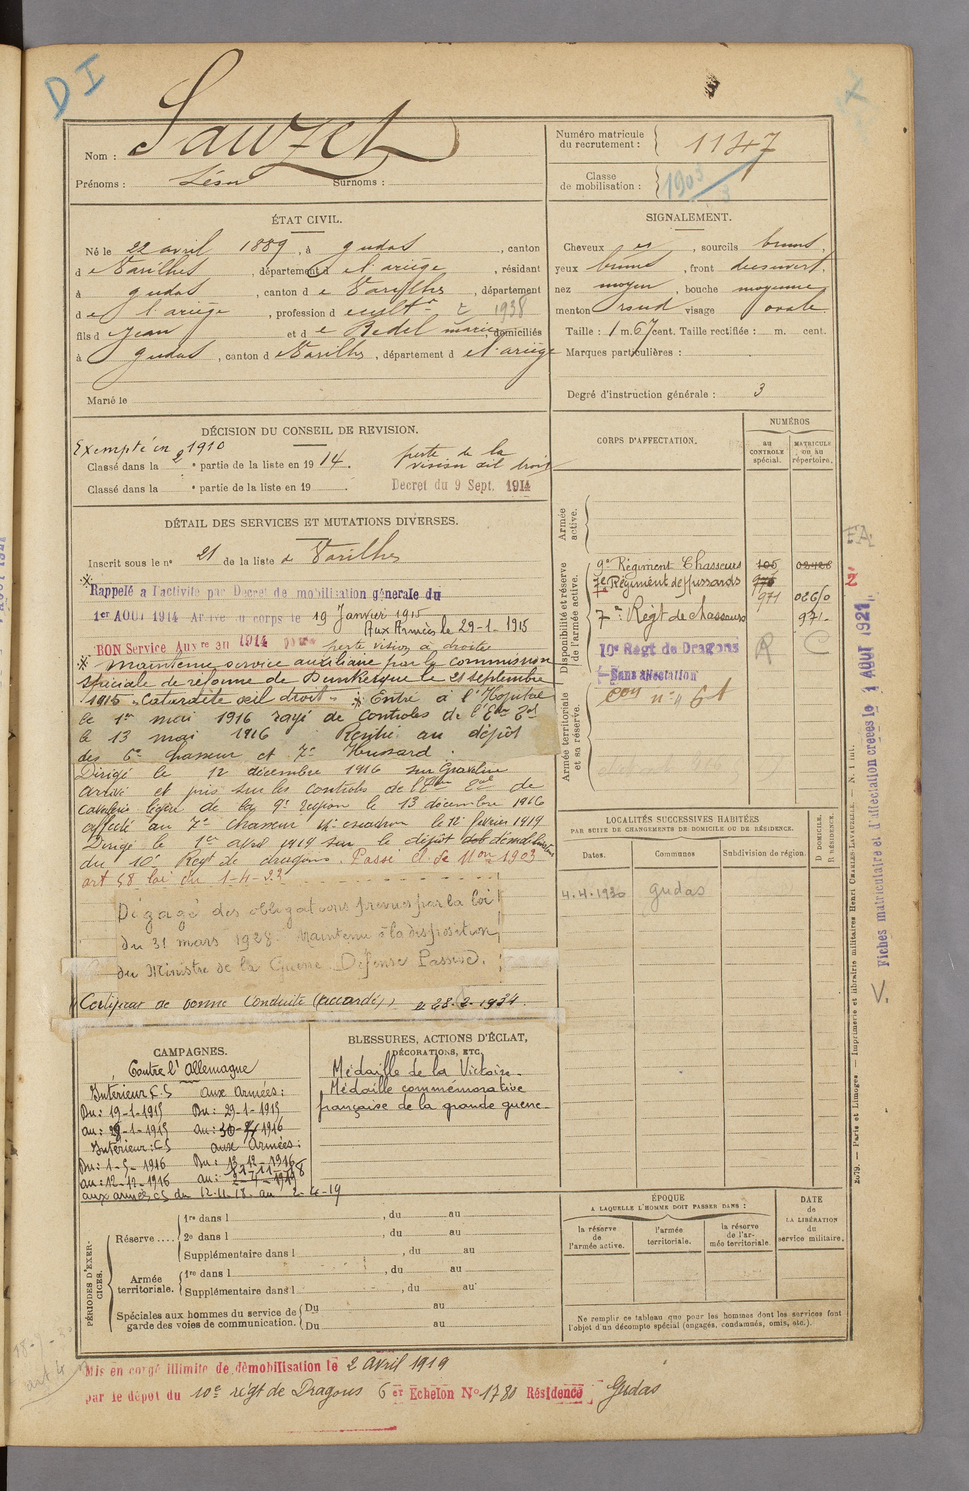 D I
Nom : Sauzet
Prénoms : Léon Surnoms :
Numéro matricule du recrutement : 1147
Classe de mobilisation : 1903
ÉTAT CIVIL.
Né le 22 avril 1889, à Gudas, canton
d e Varilhes, département d e l'ariège, résidant
à Gudas, canton d e Varilhes, département
d e l'ariège, profession d cultr 1938
fils d Jean et d e Redel marie, domiciliés
à Gudas, canton d Varilhes, département d e l'ariège
Marié le
SIGNALEMENT.
Cheveux , sourcils bruns,
yeux bruns, front découvert,
nez moyen, bouche moyenne
menton rond visage ovale
Taille : 1 m. 67 cent. Taille rectifiée : m. cent.
Marques particulières :
Degré d'instruction générale : 3
DÉCISION DU CONSEIL DE REVISION.
Exempté en 1910
Classé dans la 2e partie de la liste en 1914. perte de la vision œil droit
Classé dans la e partie de la liste en 19 Decret du 9 Sept. 1914
DÉTAIL DES SERVICES ET MUTATIONS DIVERSES.
Inscrit sous le no 21 de la liste d Varilhes
Rappelé a l'activité par Decret de mobilisation générale du
1er AOUT 1914 Arrivé au corps le 19 Janvier 1915
Aux Armées le 29-1-1915
BON Service Auxre au 1914 perte vision à droite
* maintenu service auxiliaire par la commission
spéciale de réforme de Dunkerque le 21 septembre
1915 Cataracte œil droit. * Entré à l'Hopital
le 1er mai 1916 rayé de controles de l'
le 13 mai 1916 Rentré au dépôt
des 6e chasseur et 7e Hussard.
Dirigé le 12 décembre 1916 sur Graveline
arrivé et pris sur les controles de l' de
cavalerie légère de la 9e région le 13 décembre 1916
affecté au 7e chasseur 4e escadron le 12 février 1919
Dirigé le 1er avril 1919 sur le dépôt
du 10e Régt de dragons. Passé cl. de 1903
art 58 loi du 1-4-23
Dégagé des obligations prévues par la loi
du 31 mars 1928. Maintenu à la disposition
du Ministre de la Guerre Défense Passive.
Certificat de bonne conduite (accordé) le 28-2-1934.
CORPS D'AFFECTATION.
NUMÉROS
AU CONTROLE spécial.
MATRICULE OU AU répertoire.
Armée active.
Disponibilité et réserve de l'armée active.
9e Régiment Chasseurs 105 02428
7e Régiment de Hussards 971 02650
7e Régt de chasseurs 971
10e Régt de Dragons
Sans affectation
R C
Armée territoriale et sa réserve.
LOCALITÉS SUCCESSIVES HABITÉES
PAR SUITE DE CHANGEMENTS DE DOMICILE OU DE RÉSIDENCE.
Dates. Communes Subdivision de région. D DOMICILE. R RÉSIDENCE.
4.4.1930 Gudas
CAMPAGNES.
Contre l'Allemagne
Intérieur C.S aux armées :
Du : 19-1-1915 Du : 29-1-1915
au : 29-1-1915 au : 30-4-1916
Intérieur : CS aux Armées :
Du : 1-5-1916 Du : 13-12-1916
au : 12-12-1916 au : 11-11-1918
aux armées CS du 12.11.18. au 2-4-19
BLESSURES, ACTIONS D'ÉCLAT,
DÉCORATIONS, ETC.
Médaille de la Victoire.
Médaille commémorative
française de la grande guerre
PÉRIODES D'EXERCICES.
Réserve ....
1re dans l , du au
2e dans l , du au
Supplémentaire dans l , du au
Armée territoriale.
1re dans l , du au
Supplémentaire dans l , du au
Spéciales aux hommes du service de garde des voies de communication.
Du au
Du au
ÉPOQUE
A LAQUELLE L'HOMME DOIT PASSER DANS :
la réserve de l'armée active.
l'armée territoriale.
la réserve de l'armée territoriale.
DATE de LA LIBÉRATION du service militaire.
Ne remplir ce tableau que pour les hommes dont les services font
l'objet d'un décompte spécial (engagés, condamnés, omis, etc.).
Mis en congé illimité de démobilisation le 2 avril 1919
par le dépot du 10e régt de Dragons 6er Echelon No 1780 Résidence Gudas
2079. — Paris et Limoges. — Imprimerie et librairie militaires Henri CHARLES-LAVAUZELLE. — N. 1 mt.
Fiches matriculaire et d'affectation créées le 1 AOUT 1921